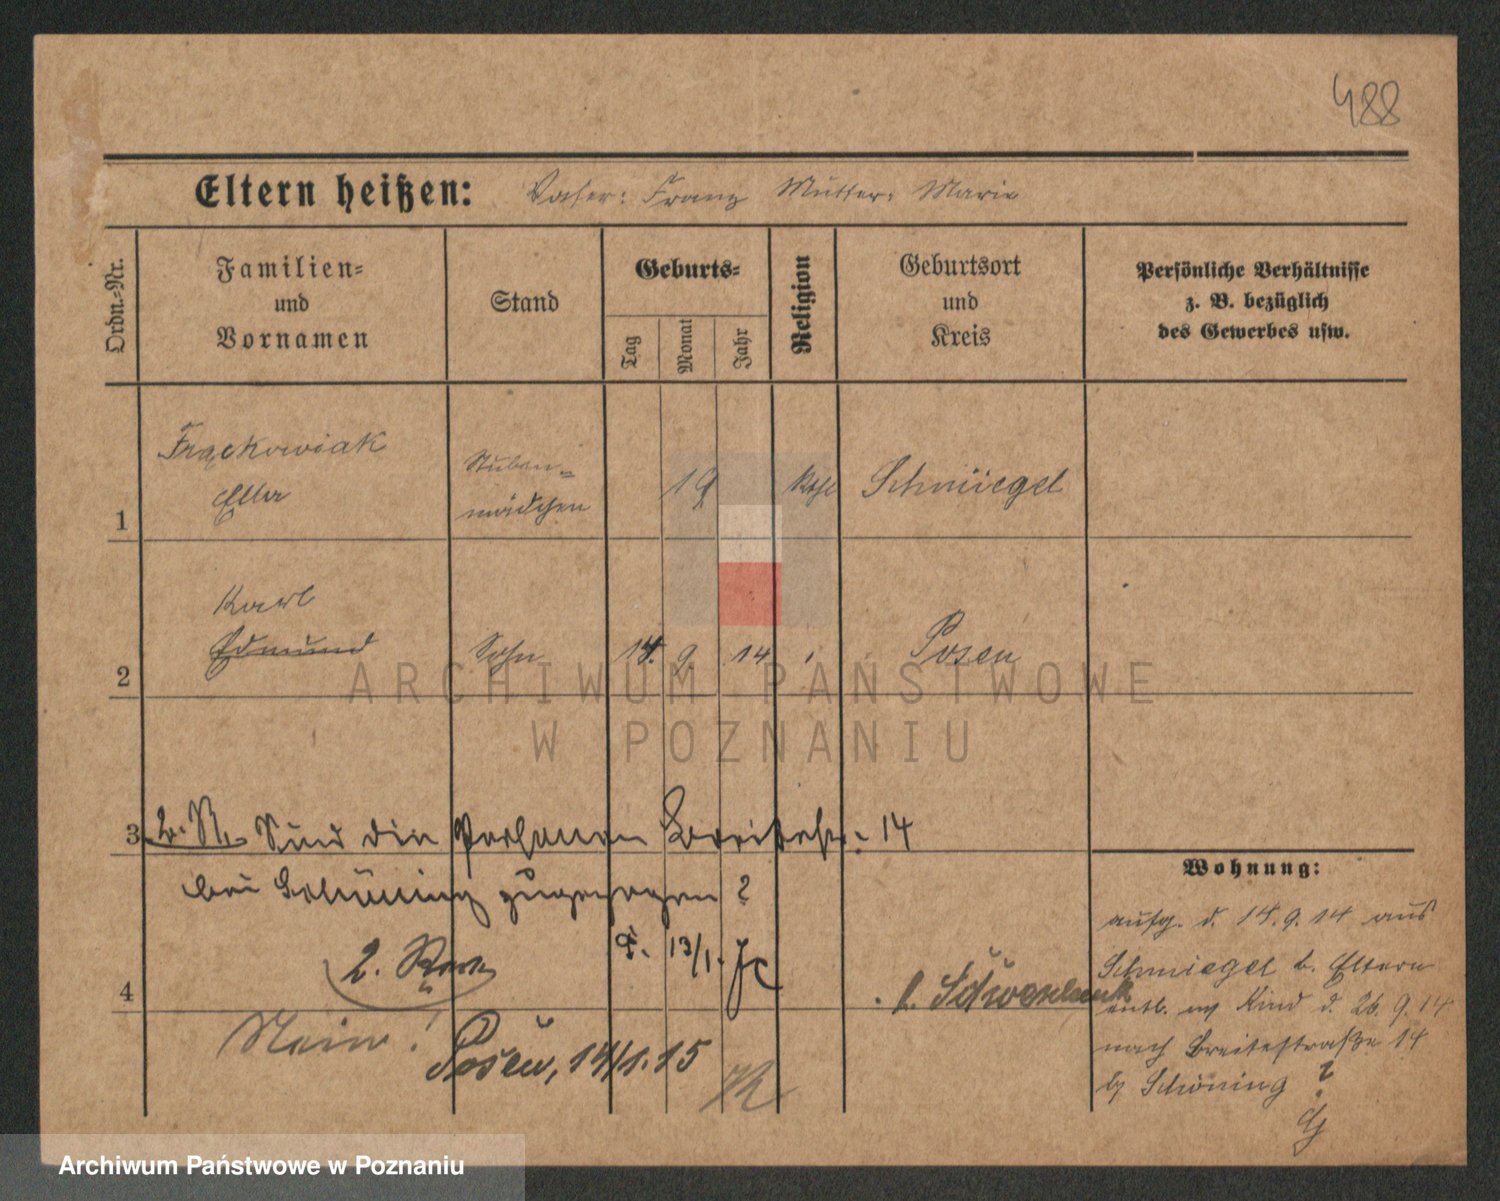 488
Eltern heißen: Vater: Franz Mutter: Marie
Ordn.-Nr.
Familien-
und
Vornamen
Stand
Geburts-
Tag
Monat
Jahr
Religion
Geburtsort
und
Kreis
Persönliche Verhältnisse
z. B. bezüglich
des Gewerbes usw.
1
Frąckowiak
Ella
Stuben-
mädchen
19
kath
Schmiegel
2
Karl
Edmund
Sohn
14. 9 14
Posen
3
2. R. Sind die Personen Breitestr. 14
bei Schöning zugezogen?
4
2. Rev.
13/1.
Nein!
Posen, 14/1.15
Wohnung:
aufg. d. 14.9.14 aus
Schmiegel b. Eltern
entl. Kind d. 26.9.14
nach Breitestraße 14
b/ Schöning ?
ARCHIWUM PAŃSTWOWE
W POZNANIU
Archiwum Państwowe w Poznaniu